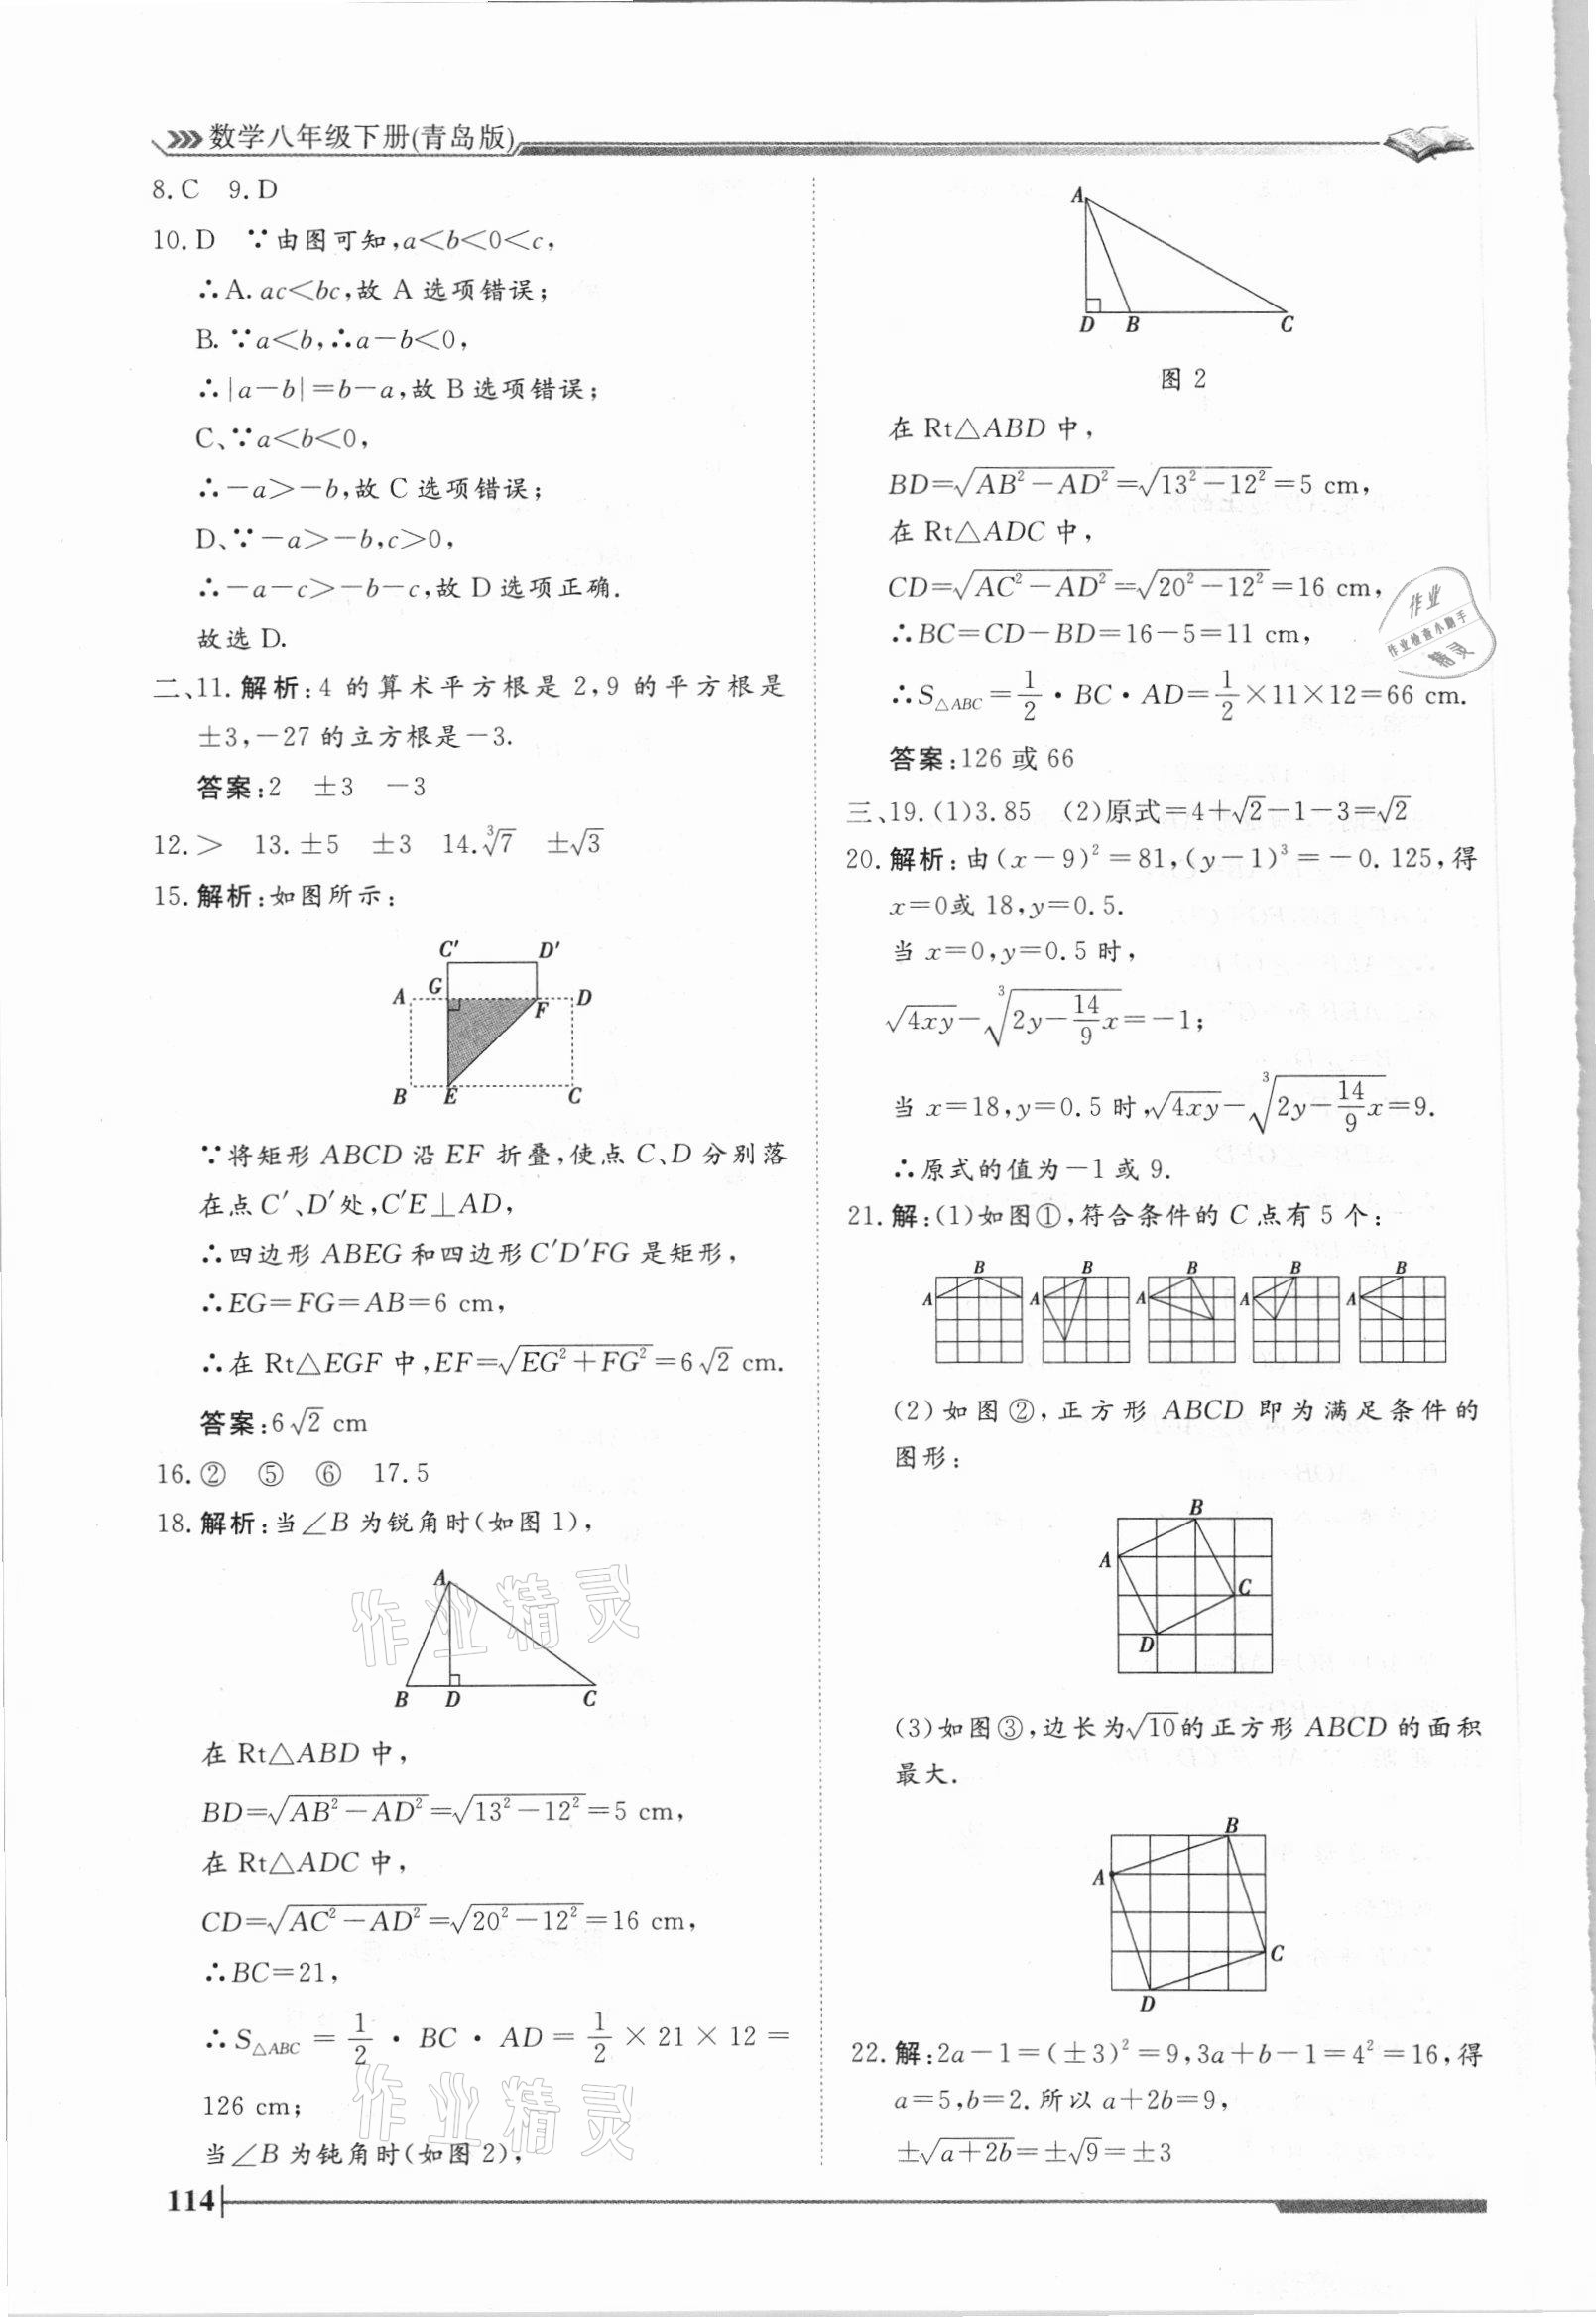 数学八年级下册(青岛版)
8.C 9.D
10.D ∵由图可知,a<b<0<c,
∴A.ac<bc,故 A 选项错误;
B.∵a<b,∴a-b<0,
∴|a-b|=b-a,故 B 选项错误;
C、∵a<b<0,
∴-a>-b,故 C 选项错误;
D、∵-a>-b,c>0,
∴-a-c>-b-c,故 D 选项正确.
故选 D.
二、11.解析:4 的算术平方根是 2,9 的平方根是
±3,-27 的立方根是-3.
答案:2 ±3 -3
12.> 13.±5 ±3 14.∛7 ±√3
15.解析:如图所示:
C′ D′
A G F D
B E C
∵将矩形 ABCD 沿 EF 折叠,使点 C、D 分别落
在点 C′、D′处,C′E⊥AD,
∴四边形 ABEG 和四边形 C′D′FG 是矩形,
∴EG=FG=AB=6 cm,
∴在 Rt△EGF 中,EF=√(EG²+FG²)=6√2 cm.
答案:6√2 cm
16.② ⑤ ⑥ 17.5
18.解析:当∠B 为锐角时(如图 1),
A
B D C
在 Rt△ABD 中,
BD=√(AB²-AD²)=√(13²-12²)=5 cm,
在 Rt△ADC 中,
CD=√(AC²-AD²)=√(20²-12²)=16 cm,
∴BC=21,
∴S△ABC=1/2·BC·AD=1/2×21×12=
126 cm;
当∠B 为钝角时(如图 2),
A
D B C
图 2
在 Rt△ABD 中,
BD=√(AB²-AD²)=√(13²-12²)=5 cm,
在 Rt△ADC 中,
CD=√(AC²-AD²)=√(20²-12²)=16 cm,
∴BC=CD-BD=16-5=11 cm,
∴S△ABC=1/2·BC·AD=1/2×11×12=66 cm.
答案:126 或 66
三、19.(1)3.85 (2)原式=4+√2-1-3=√2
20.解析:由(x-9)²=81,(y-1)³=-0.125,得
x=0或 18,y=0.5.
当 x=0,y=0.5 时,
√(4xy)-∛(2y-14/9x)=-1;
当 x=18,y=0.5 时,√(4xy)-∛(2y-14/9x)=9.
∴原式的值为-1 或 9.
21.解:(1)如图①,符合条件的 C 点有 5 个:
B B B B B
A A A A A
(2)如图②,正方形 ABCD 即为满足条件的
图形:
B
A
C
D
(3)如图③,边长为√10的正方形 ABCD 的面积
最大.
B
A
C
D
22.解:2a-1=(±3)²=9,3a+b-1=4²=16,得
a=5,b=2.所以 a+2b=9,
±√(a+2b)=±√9=±3
114
作业
作业检查小助手
精灵
作业精灵
作业精灵